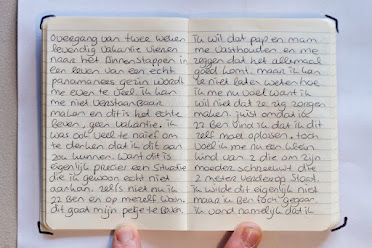 overgang van twee weken
levendig vakantie vieren
naar het binnenstappen in
een leven van een echt
panamanees gezin wordt
me even te veel. ik kan
me niet verstaanbaar
maken en dit is het echte
leven, geen vakantie. ik
was ook veel te naïef om
te denken dat ik dit aan
zou kunnen. Want dit is
eigenlijk precies een studie
die ik gewoon echt niet
aankan. zelfs niet nu ik
22 ben en op mezelf woon.
dit gaat mijn petje te boven.
ik wil dat pap en mam
me vasthouden en me
zeggen dat het allemaal
goed komt. maar ik kan
ze niet laten weten hoe
ik me nu voel want ik
wil niet dat ze zig zorgen
maken. juist omdat ik
22 ben vind ik dat ik dit
zelf moet oplossen. toch
voel ik me nu een klein
kind van 2 die om zijn
moeder schreeuwt die
2 meter verderop staat.
ik wilde dit eigenlijk niet
maar ik ben toch gegaan.
ik vond namelijk dat ik